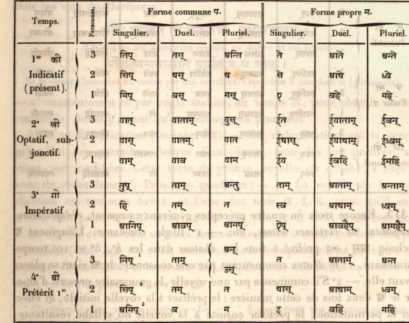 Forme commune प. Forme propre म.
Temps. Personnes. Singulier. Duel. Pluriel. Singulier. Duel. Pluriel.
3 तिप् तस् अन्ति ते आते अन्ते
1re की
Indicatif 2 सिप् थस् थ से आथे ध्वे
(présent).
1 मिप् वस् मस् ए वहे महे
3 यात् याताम् युस् ईत ईयाताम् ईरन्
2e खी
Optatif, sub- 2 यास् यातम् यात ईथास् ईयाथाम् ईध्वम्
jonctif.
1 याम् याव याम ईय ईवहि ईमहि
3 तुप् ताम् अन्तु ताम् आताम् अन्ताम्
3e गी
Impératif 2 हि तम् त स्व आथाम् ध्वम्
1 आनिप् आवप् आमप् ऐप् आवहैप् आमहैप्
अन्
3 ताम् त आताम् अन्त
उस्
4e घी
Prétérit 1er. 2 सिप् तम् त थास् आथाम् ध्वम्
1 व म इ वहि महि